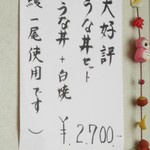 大好評
うな丼セット
うな丼＋白焼
¥2.700-
一尾使用です)